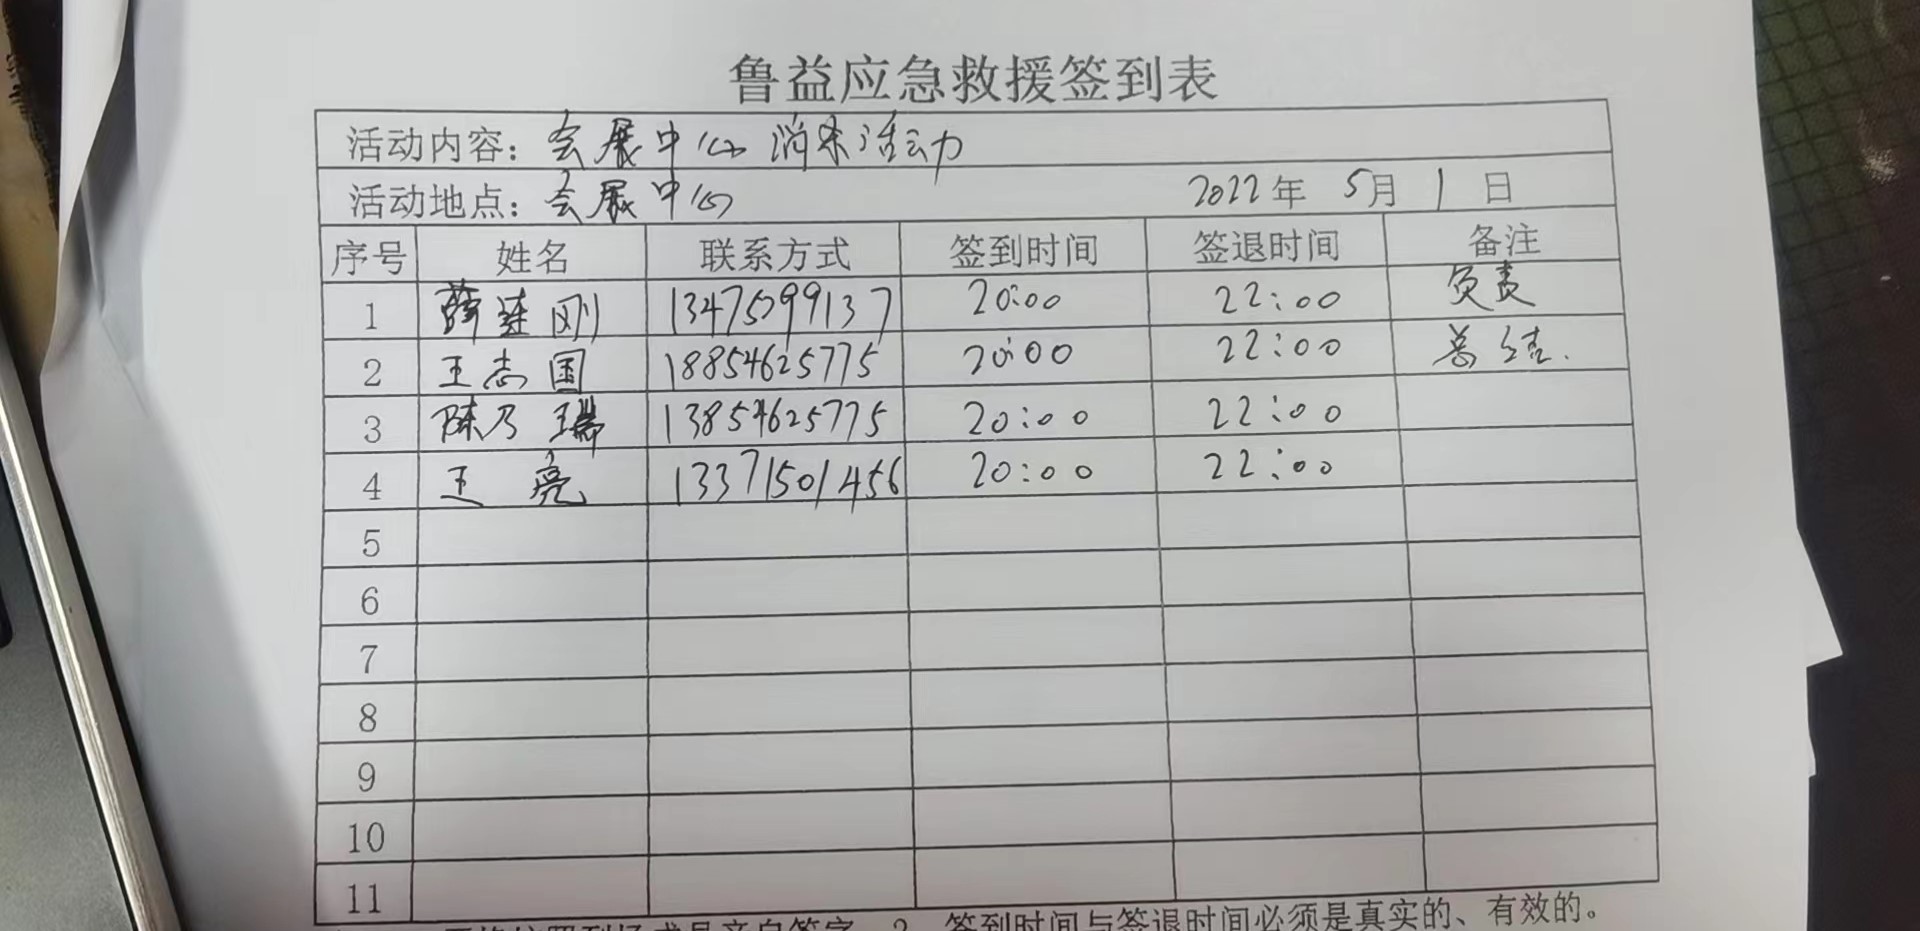 鲁益应急救援签到表
活动内容：会展中心消杀活动
活动地点：会展中心 2022年 5月 1日
序号 姓名 联系方式 签到时间 签退时间 备注
1 薛连刚 13475099137 20:00 22:00 负责
2 王志国 18854625775 20:00 22:00 总结.
3 陈乃瑞 13854625775 20:00 22:00
4 王亮 13371501456 20:00 22:00
5
6
7
8
9
10
11
签到时间与签退时间必须是真实的、有效的。